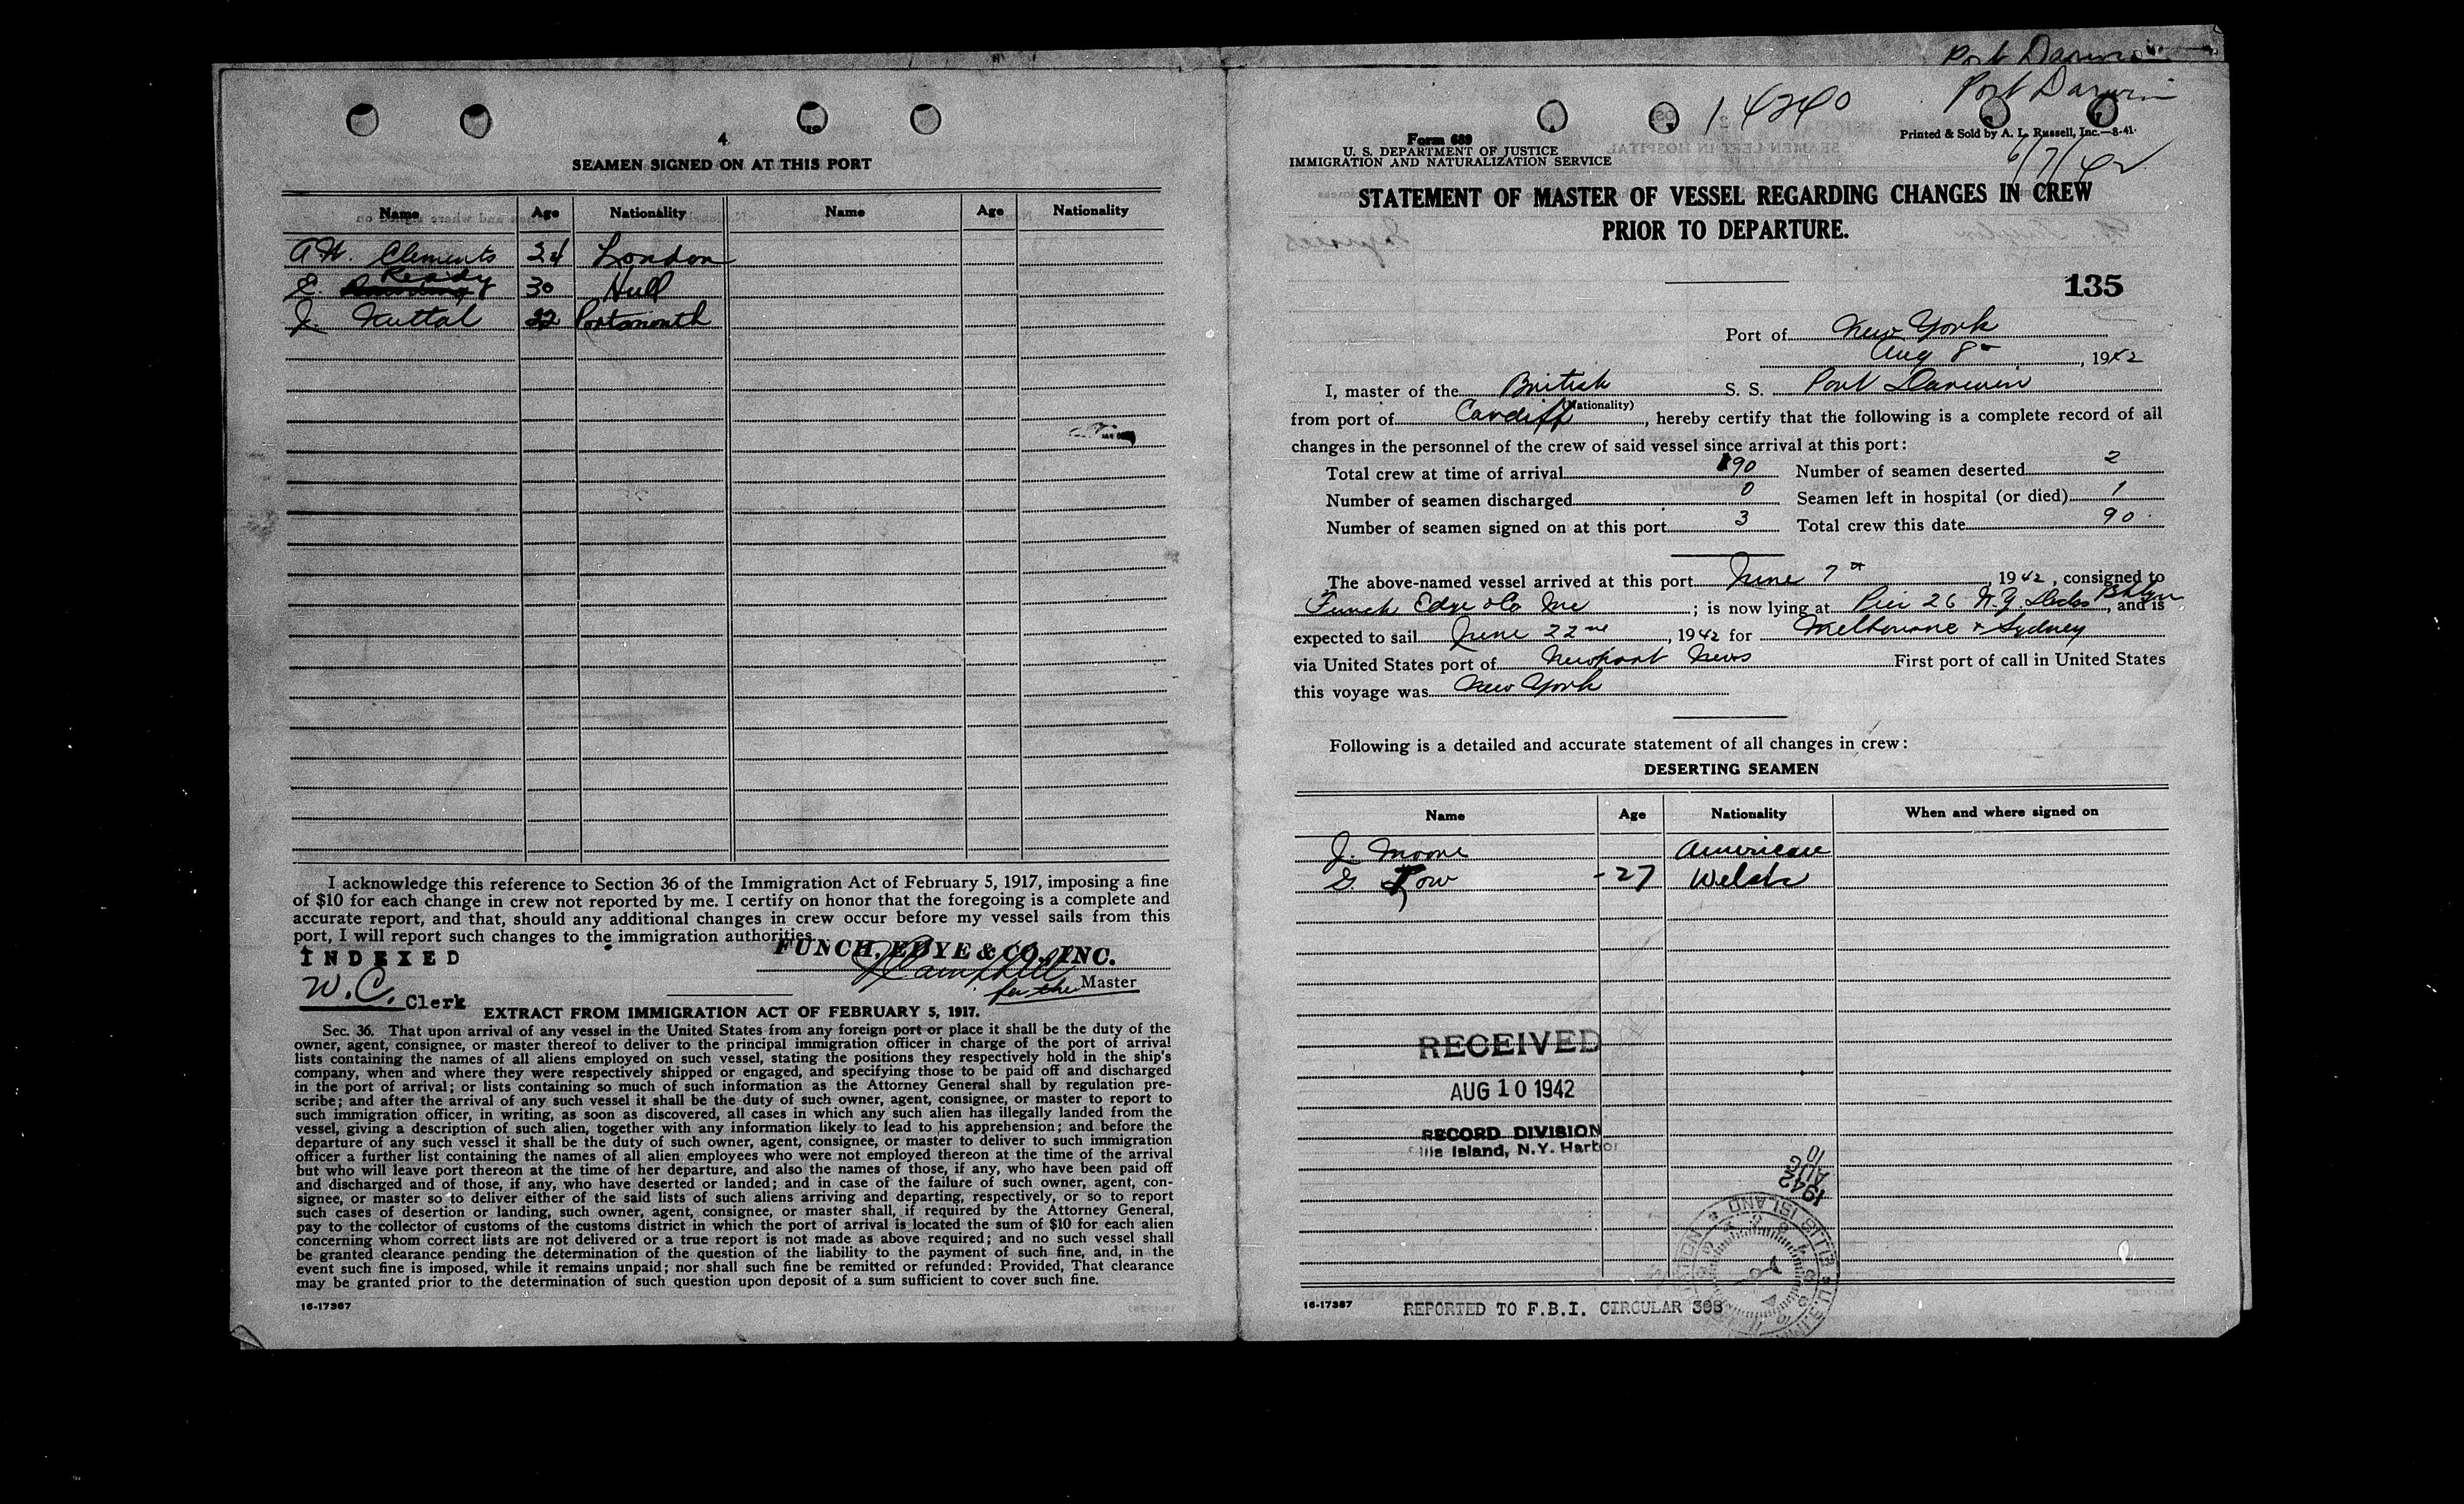 4
SEAMEN SIGNED ON AT THIS PORT
Name Age Nationality Name Age Nationality
A. W. Clements 24 London
E. Ready 30 Hull
J. Nuttal 22 Portsmouth
I acknowledge this reference to Section 36 of the Immigration Act of February 5, 1917, imposing a fine
of $10 for each change in crew not reported by me. I certify on honor that the foregoing is a complete and
accurate report, and that, should any additional changes in crew occur before my vessel sails from this
port, I will report such changes to the immigration authorities.
FUNCH, EDYE & CO., INC.
INDEXED
for the Master
W.C. Clerk
EXTRACT FROM IMMIGRATION ACT OF FEBRUARY 5, 1917.
Sec. 36. That upon arrival of any vessel in the United States from any foreign port or place it shall be the duty of the
owner, agent, consignee, or master thereof to deliver to the principal immigration officer in charge of the port of arrival
lists containing the names of all aliens employed on such vessel, stating the positions they respectively hold in the ship's
company, when and where they were respectively shipped or engaged, and specifying those to be paid off and discharged
in the port of arrival; or lists containing so much of such information as the Attorney General shall by regulation pre-
scribe; and after the arrival of any such vessel it shall be the duty of such owner, agent, consignee, or master to report to
such immigration officer, in writing, as soon as discovered, all cases in which any such alien has illegally landed from the
vessel, giving a description of such alien, together with any information likely to lead to his apprehension; and before the
departure of any such vessel it shall be the duty of such owner, agent, consignee, or master to deliver to such immigration
officer a further list containing the names of all alien employees who were not employed thereon at the time of the arrival
but who will leave port thereon at the time of her departure, and also the names of those, if any, who have been paid off
and discharged and of those, if any, who have deserted or landed; and in case of the failure of such owner, agent, con-
signee, or master so to deliver either of the said lists of such aliens arriving and departing, respectively, or so to report
such cases of desertion or landing, such owner, agent, consignee, or master shall, if required by the Attorney General,
pay to the collector of customs of the customs district in which the port of arrival is located the sum of $10 for each alien
concerning whom correct lists are not delivered or a true report is not made as above required; and no such vessel shall
be granted clearance pending the determination of the question of the liability to the payment of such fine, and, in the
event such fine is imposed, while it remains unpaid; nor shall such fine be remitted or refunded: Provided, That clearance
may be granted prior to the determination of such question upon deposit of a sum sufficient to cover such fine.
16-17367
Port Darwin
Port Darwin
14240
Form 689
U. S. DEPARTMENT OF JUSTICE
IMMIGRATION AND NATURALIZATION SERVICE
Printed & Sold by A. L. Russell, Inc.—8-41
6/7/42
STATEMENT OF MASTER OF VESSEL REGARDING CHANGES IN CREW
PRIOR TO DEPARTURE.
135
Port of New York
Aug 8, 1942
I, master of the British S. S. Port Darwin
(Nationality)
from port of Cardiff, hereby certify that the following is a complete record of all
changes in the personnel of the crew of said vessel since arrival at this port:
Total crew at time of arrival 90 Number of seamen deserted 2
Number of seamen discharged 0 Seamen left in hospital (or died) 1
Number of seamen signed on at this port 3 Total crew this date 90
The above-named vessel arrived at this port June 7th 1942, consigned to
Funch Edye & Co Inc; is now lying at Pier 26 N.Y. Docks Bklyn, and is
expected to sail June 22nd, 1942 for Melbourne & Sydney
via United States port of Newport News First port of call in United States
this voyage was New York
Following is a detailed and accurate statement of all changes in crew:
DESERTING SEAMEN
Name Age Nationality When and where signed on
J. Moore American
G. Row - 27 Welsh
RECEIVED
AUG 10 1942
RECORD DIVISION
Ellis Island, N.Y. Harbor
1942
AUG
10
ELLIS ISLAND
16-17367
REPORTED TO F.B.I. CIRCULAR 303